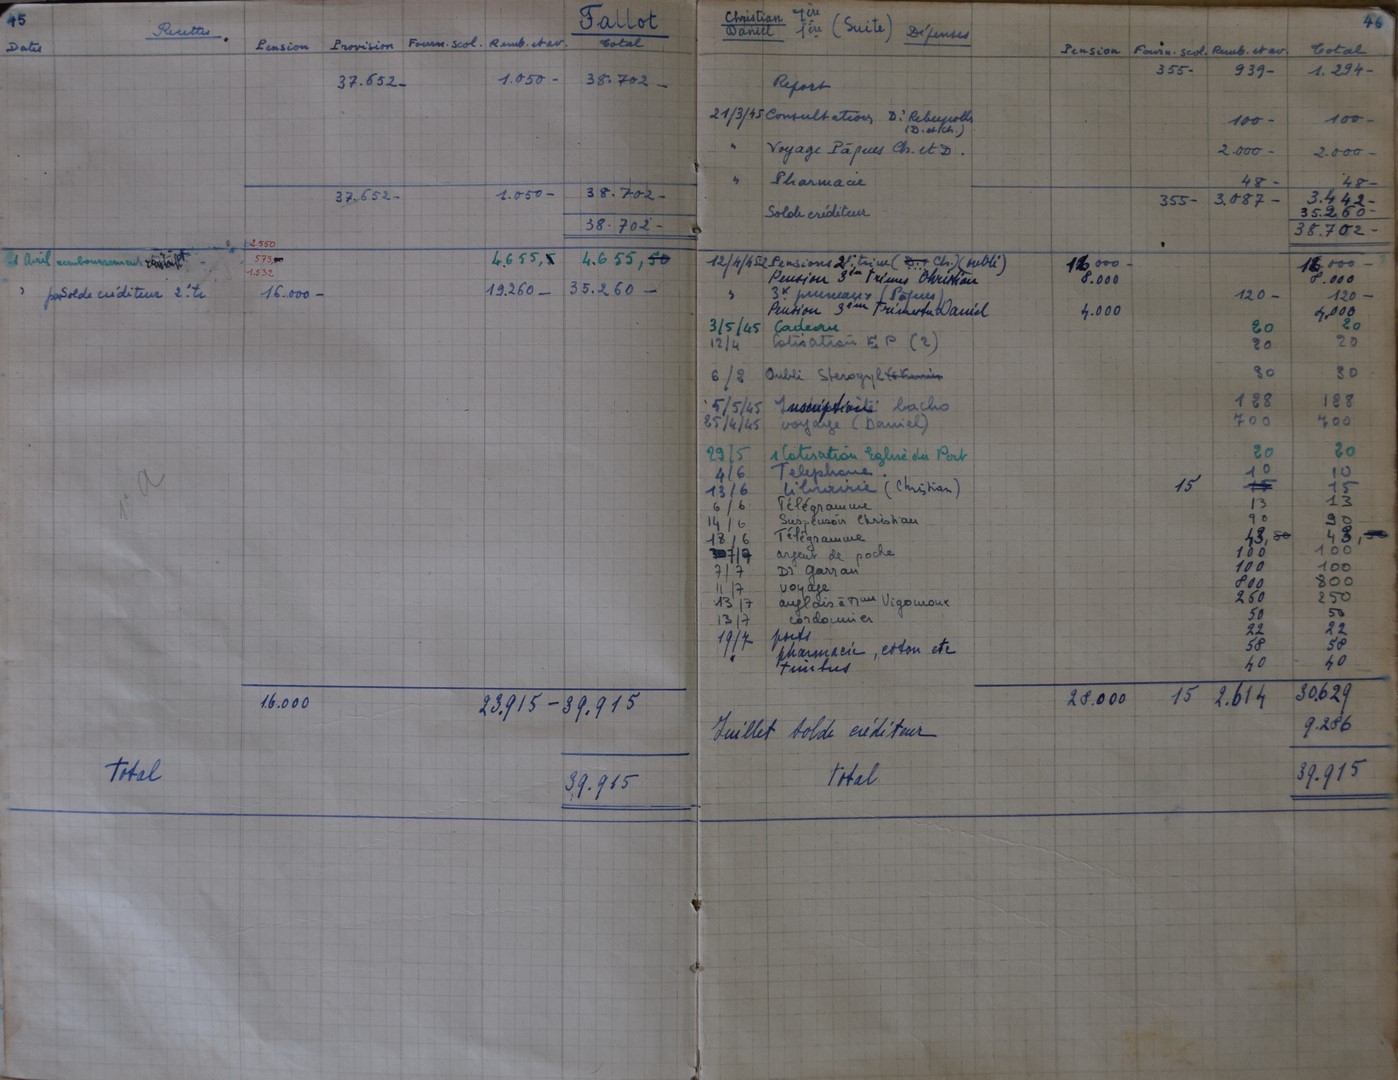 45
Recettes.
Fallot
Dates Pension Provision Fourn. scol. Remb. et av. Total
37.652- 1.050- 38.702-
37.652- 1.050- 38.702-
38.702-
2.550
Avril remboursement 573 4.655, 4.655,
1.532
" Solde créditeur 2e tr 16.000- 19.260- 35.260-
16.000 23.915- 39.915
Total 39.915
46
Christian 1ère
Daniel 1ère (Suite) Dépenses
Pension Fourn. scol. Remb. et av. Total
Report 355- 939- 1.294-
21/3/45 Consultations Dr
(D. et Ch.) 100- 100-
" Voyage Pâques Ch. et D. 2.000- 2.000-
" Pharmacie 48- 48-
355- 3.087- 3.442-
Solde créditeur 35.260-
38.702-
12/4/45 Pensions 2e trim (Ch.) (oublié) 16.000 16.000
Pension 3ème Trimes Christian 8.000 8.000
" (Pâques) 120- 120-
Pension 3ème Trimestre Daniel 4.000 4.000
3/5/45 Cadeau 20 20
12/4 Cotisation E.P (2) 20 20
6/2 Oubli Sterogyl 30 30
5/5/45 Inscription bacho 128 128
25/4/45 voyage (Daniel) 700 700
29/5 Cotisation Eglise du Port 20 20
4/6 Telephone. 10 10
13/6 Librairie (Christian) 15 15
6/6 Télégramme 13 13
14/6 Suspensoir Christian 90 90
18/6 Télégramme 43, 43,
7/7 argent de poche 100 100
7/7 Dr Garrau 100 100
11/7 voyage 800 800
13/7 anglais à Mme Vigouroux 250 250
13/7 cordonnier 50 50
19/7 ports 22 22
" pharmacie, coton etc 58 58
timbres 40 40
28.000 15 2.614 30.629
Juillet solde créditeur 9.286
Total 39.915